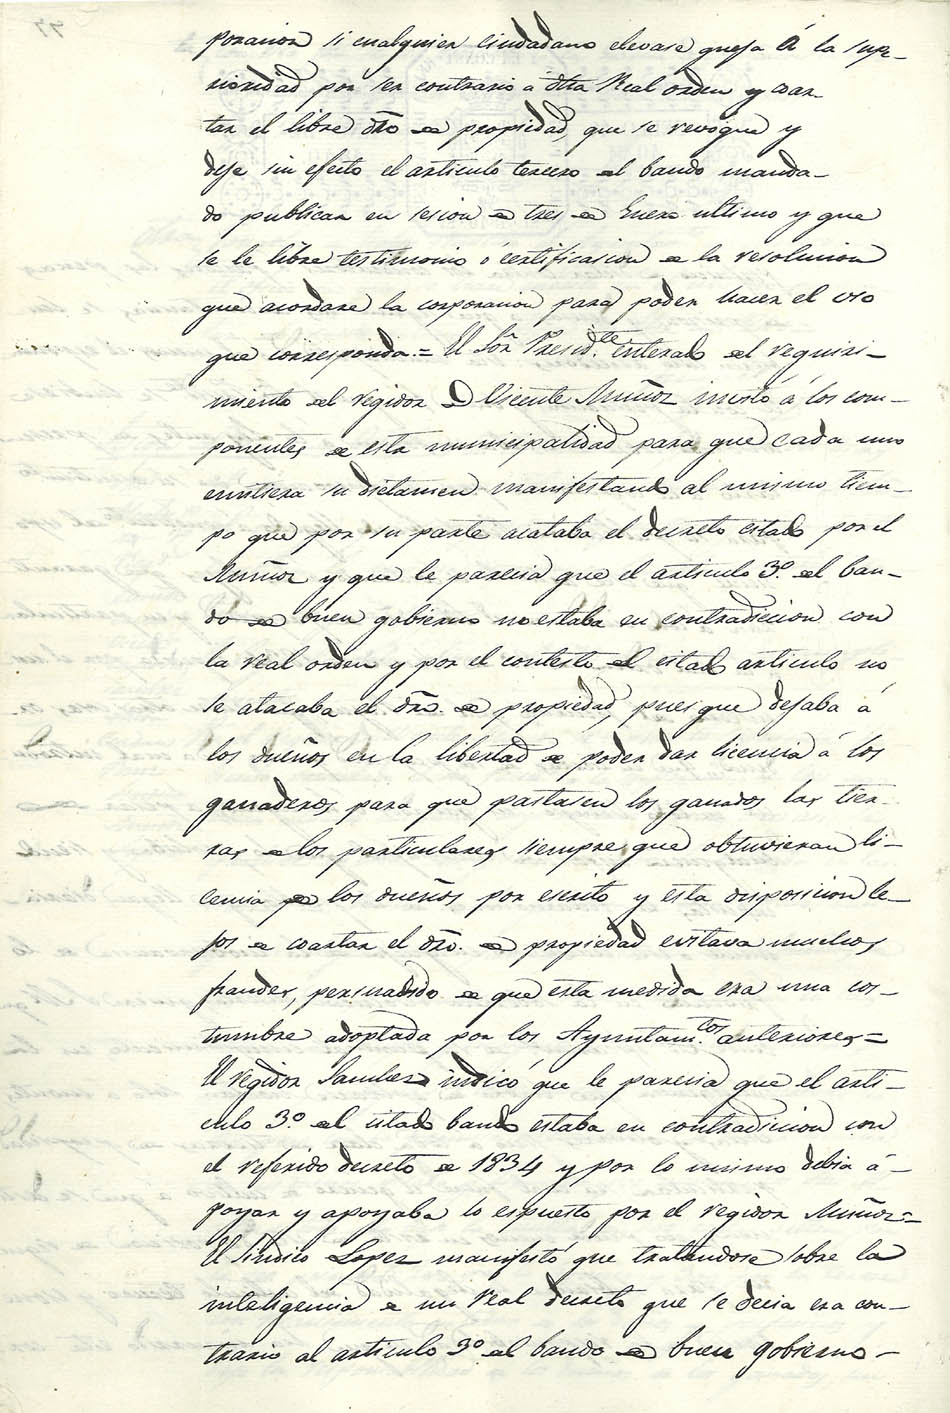 poracion si cualquier ciudadano elevase queja á la supe-
rioridad por ser contrario a dha Real orden y coar-
tar el libre dro de propiedad, que se revoque y
deje sin efecto el articulo tercero del bando manda-
do publicar en sesion de tres de Enero ultimo y que
se le libre testimonio ó certificacion de la resolucion
que acordare la corporacion para poder hacer el uso
que corresponda.= El Sor. Presid.te enterado del requiri-
miento del regidor D Vicente Muñoz invitó á los com-
ponentes de esta municipalidad para que cada uno
emitiera su dictamen manifestando al mismo tiem-
po que por su parte acataba el decreto citado por el
Muñoz y que le parecia que el articulo 3º. del ban-
do de buen gobierno no estaba en contradiccion con
la real orden y por el contesto del citado articulo no
se atacaba el dro. de propiedad, pues que dejaba á
los dueños en la libertad de poder dar licencia á los
ganaderos para que pastasen los ganados las tier-
ras de los particulares siempre que obtuvieran li-
cencia de los dueños por escrito y esta disposicion le-
jos de coartar el dro. de propiedad evitava muchos
fraudes, persuadido de que esta medida era una cos-
tumbre adoptada por los Ayuntam.tos anteriores=
El regidor Sanchez indicó que le parecia que el arti-
culo 3º. del citado bando estaba en contradiccion con
el referido decreto de 1834 y por lo mismo debia á-
poyar y apoyaba lo espuesto por el regidor Muñoz=
El Sindico Lopez manifestó que tratandose sobre la
inteligencia de un Real decreto que se decia era con-
trario al articulo 3º del bando de buen gobierno-